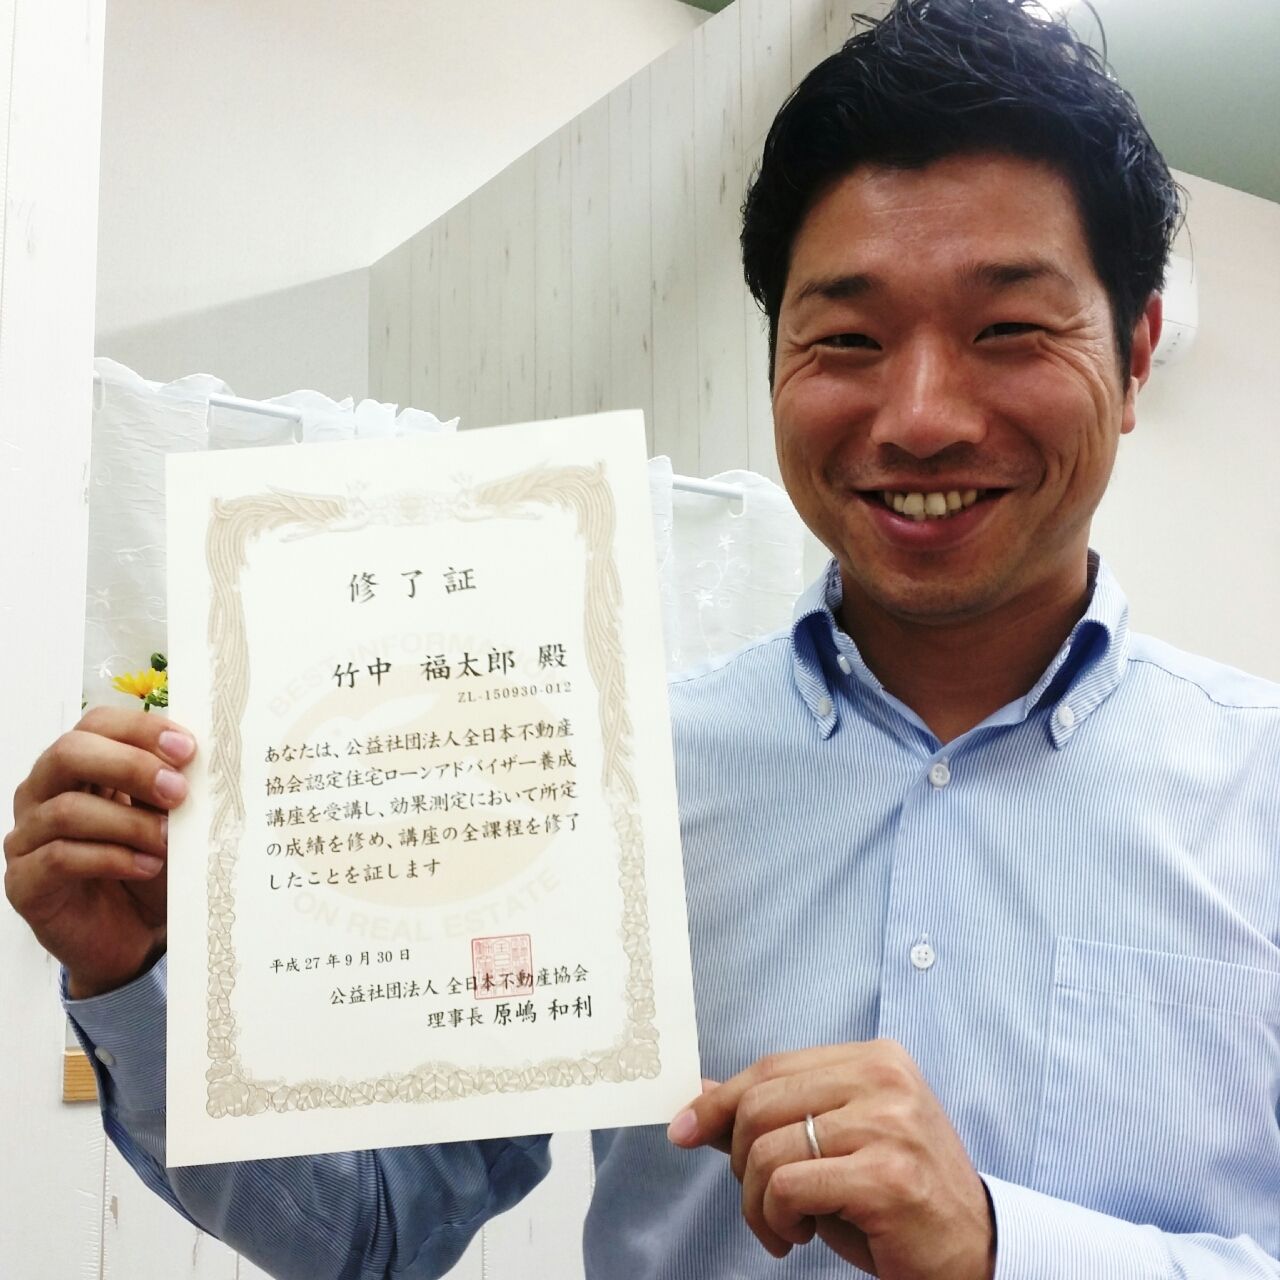 修了証
竹中 福太郎 殿
ZL-150930-012
あなたは、公益社団法人全日本不動産
協会認定住宅ローンアドバイザー養成
講座を受講し、効果測定において所定
の成績を修め、講座の全課程を修了
したことを証します
BEST INFORMATION
ON REAL ESTATE
平成27年9月30日
公益社団法人 全日本不動産協会
理事長 原嶋 和利